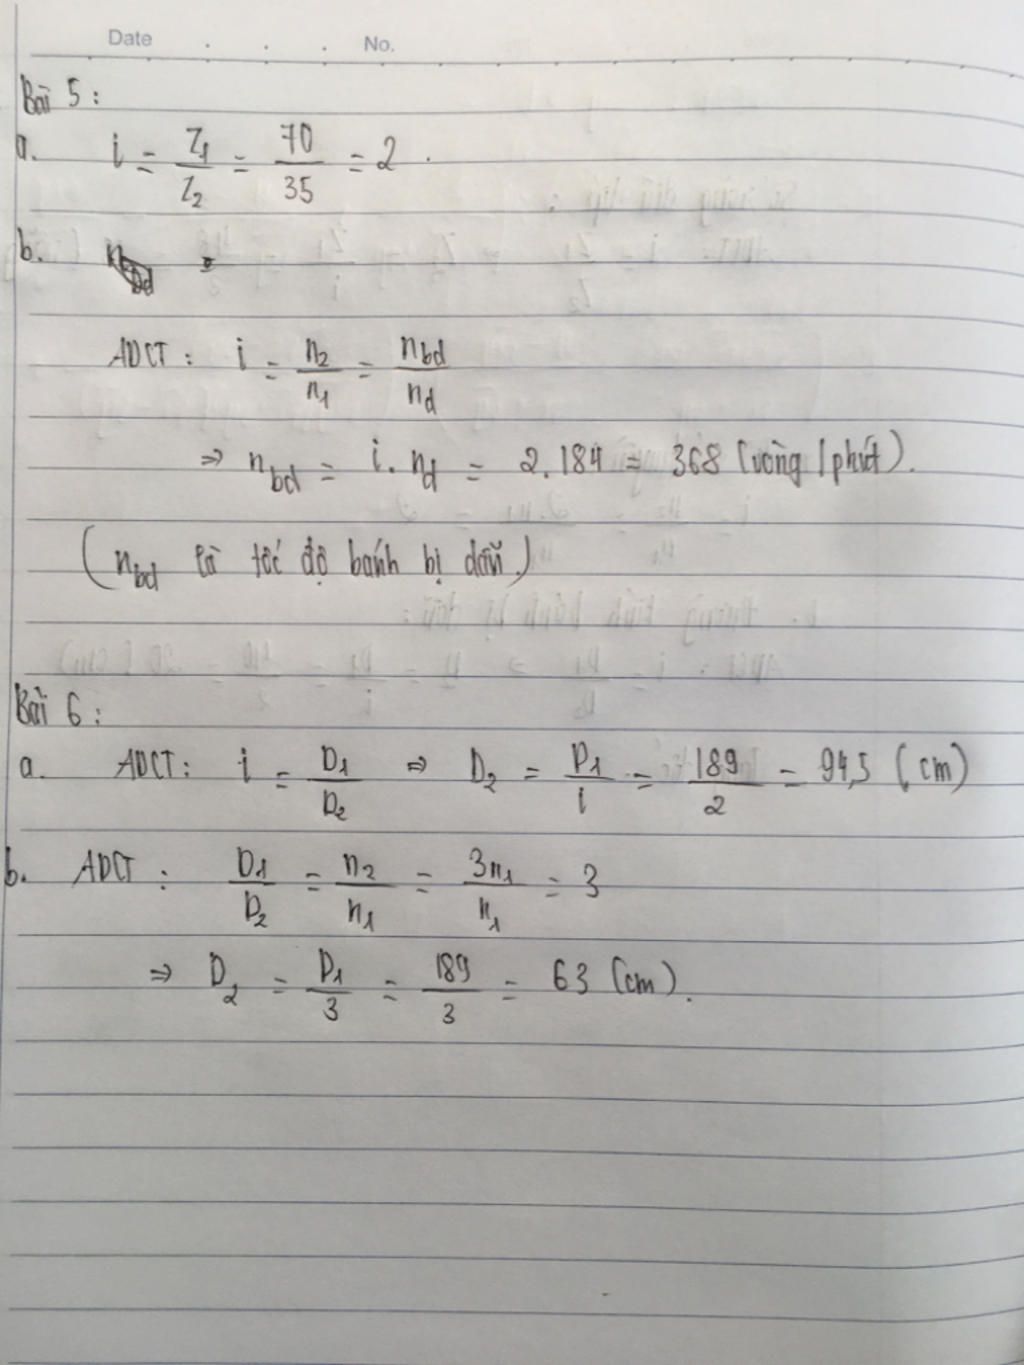 Date . . . No.
Bài 5 :
a. i = Z1/Z2 = 70/35 = 2 .
b.
ADCT : i = n2/n1 = nbd/nd
⇒ nbd = i. nd = 2.184 = 368 (vòng/phút).
(nbd là tốc độ bánh bị dẫn.)
Bài 6 :
a. ADCT: i = D1/D2 ⇒ D2 = D1/i = 189/2 = 94,5 (cm)
b. ADCT : D1/D2 = n2/n1 = 3n1/n1 = 3
⇒ D2 = D1/3 = 189/3 = 63 (cm).